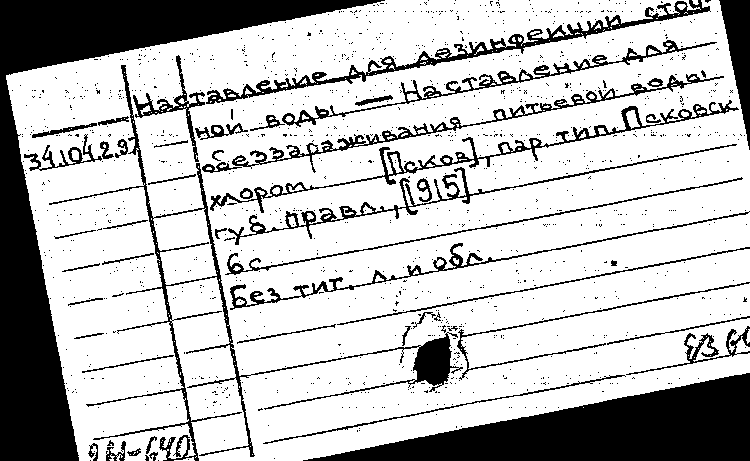 Наставление для дезинфекции сточ-
ной воды. — Наставление для
34.104.2.97
обеззараживания питьевой воды
хлором. [Псков], пар. тип. Псковск
губ. правл., [1915].
6 с.
Без тит. л. и обл.